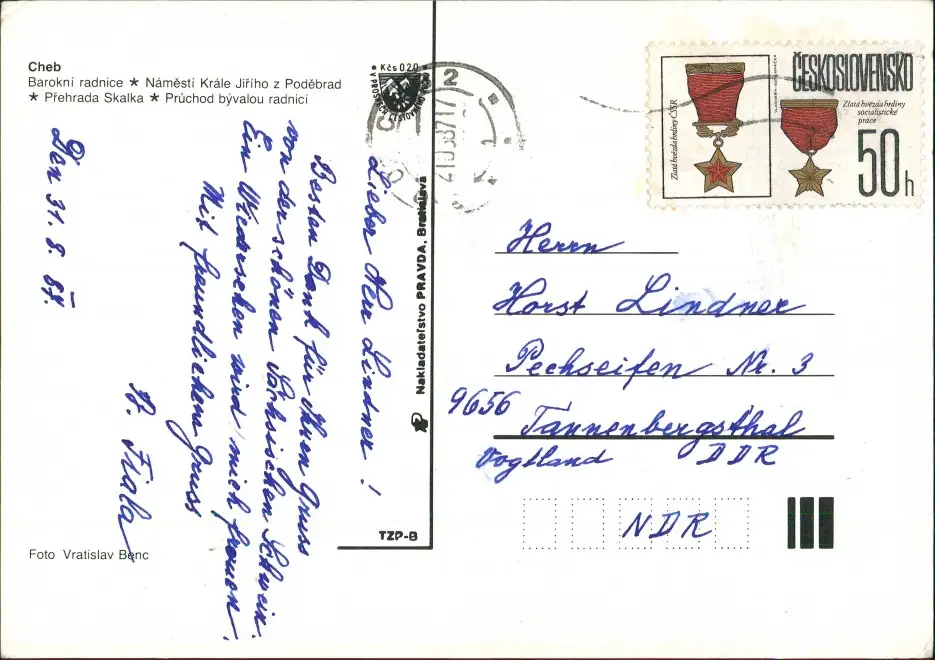 Cheb
Barokní radnice ★ Náměstí Krále Jiřího z Poděbrad
★ Přehrada Skalka ★ Průchod bývalou radnicí
Kčs 0.20
ČESKOSLOVENSKO
Zlatá hvězda hrdiny ČSSR
Zlatá hvězda hrdiny
socialistické
práce
50 h
Den 31. 8. 87.
Lieber Herr Lindner!
Besten Dank für Ihren Gruss
von der schönen Sächsischen Schweiz.
Ein Wiedersehen wird mich freuen.
Mit freundlichem Gruss
Fiala
Nakladateľstvo PRAVDA, Bratislava
TZP-B
Foto Vratislav Benc
Herrn
Horst Lindner
Pechseifen Nr. 3
9656 Tannenbergsthal
Vogtland DDR
NDR